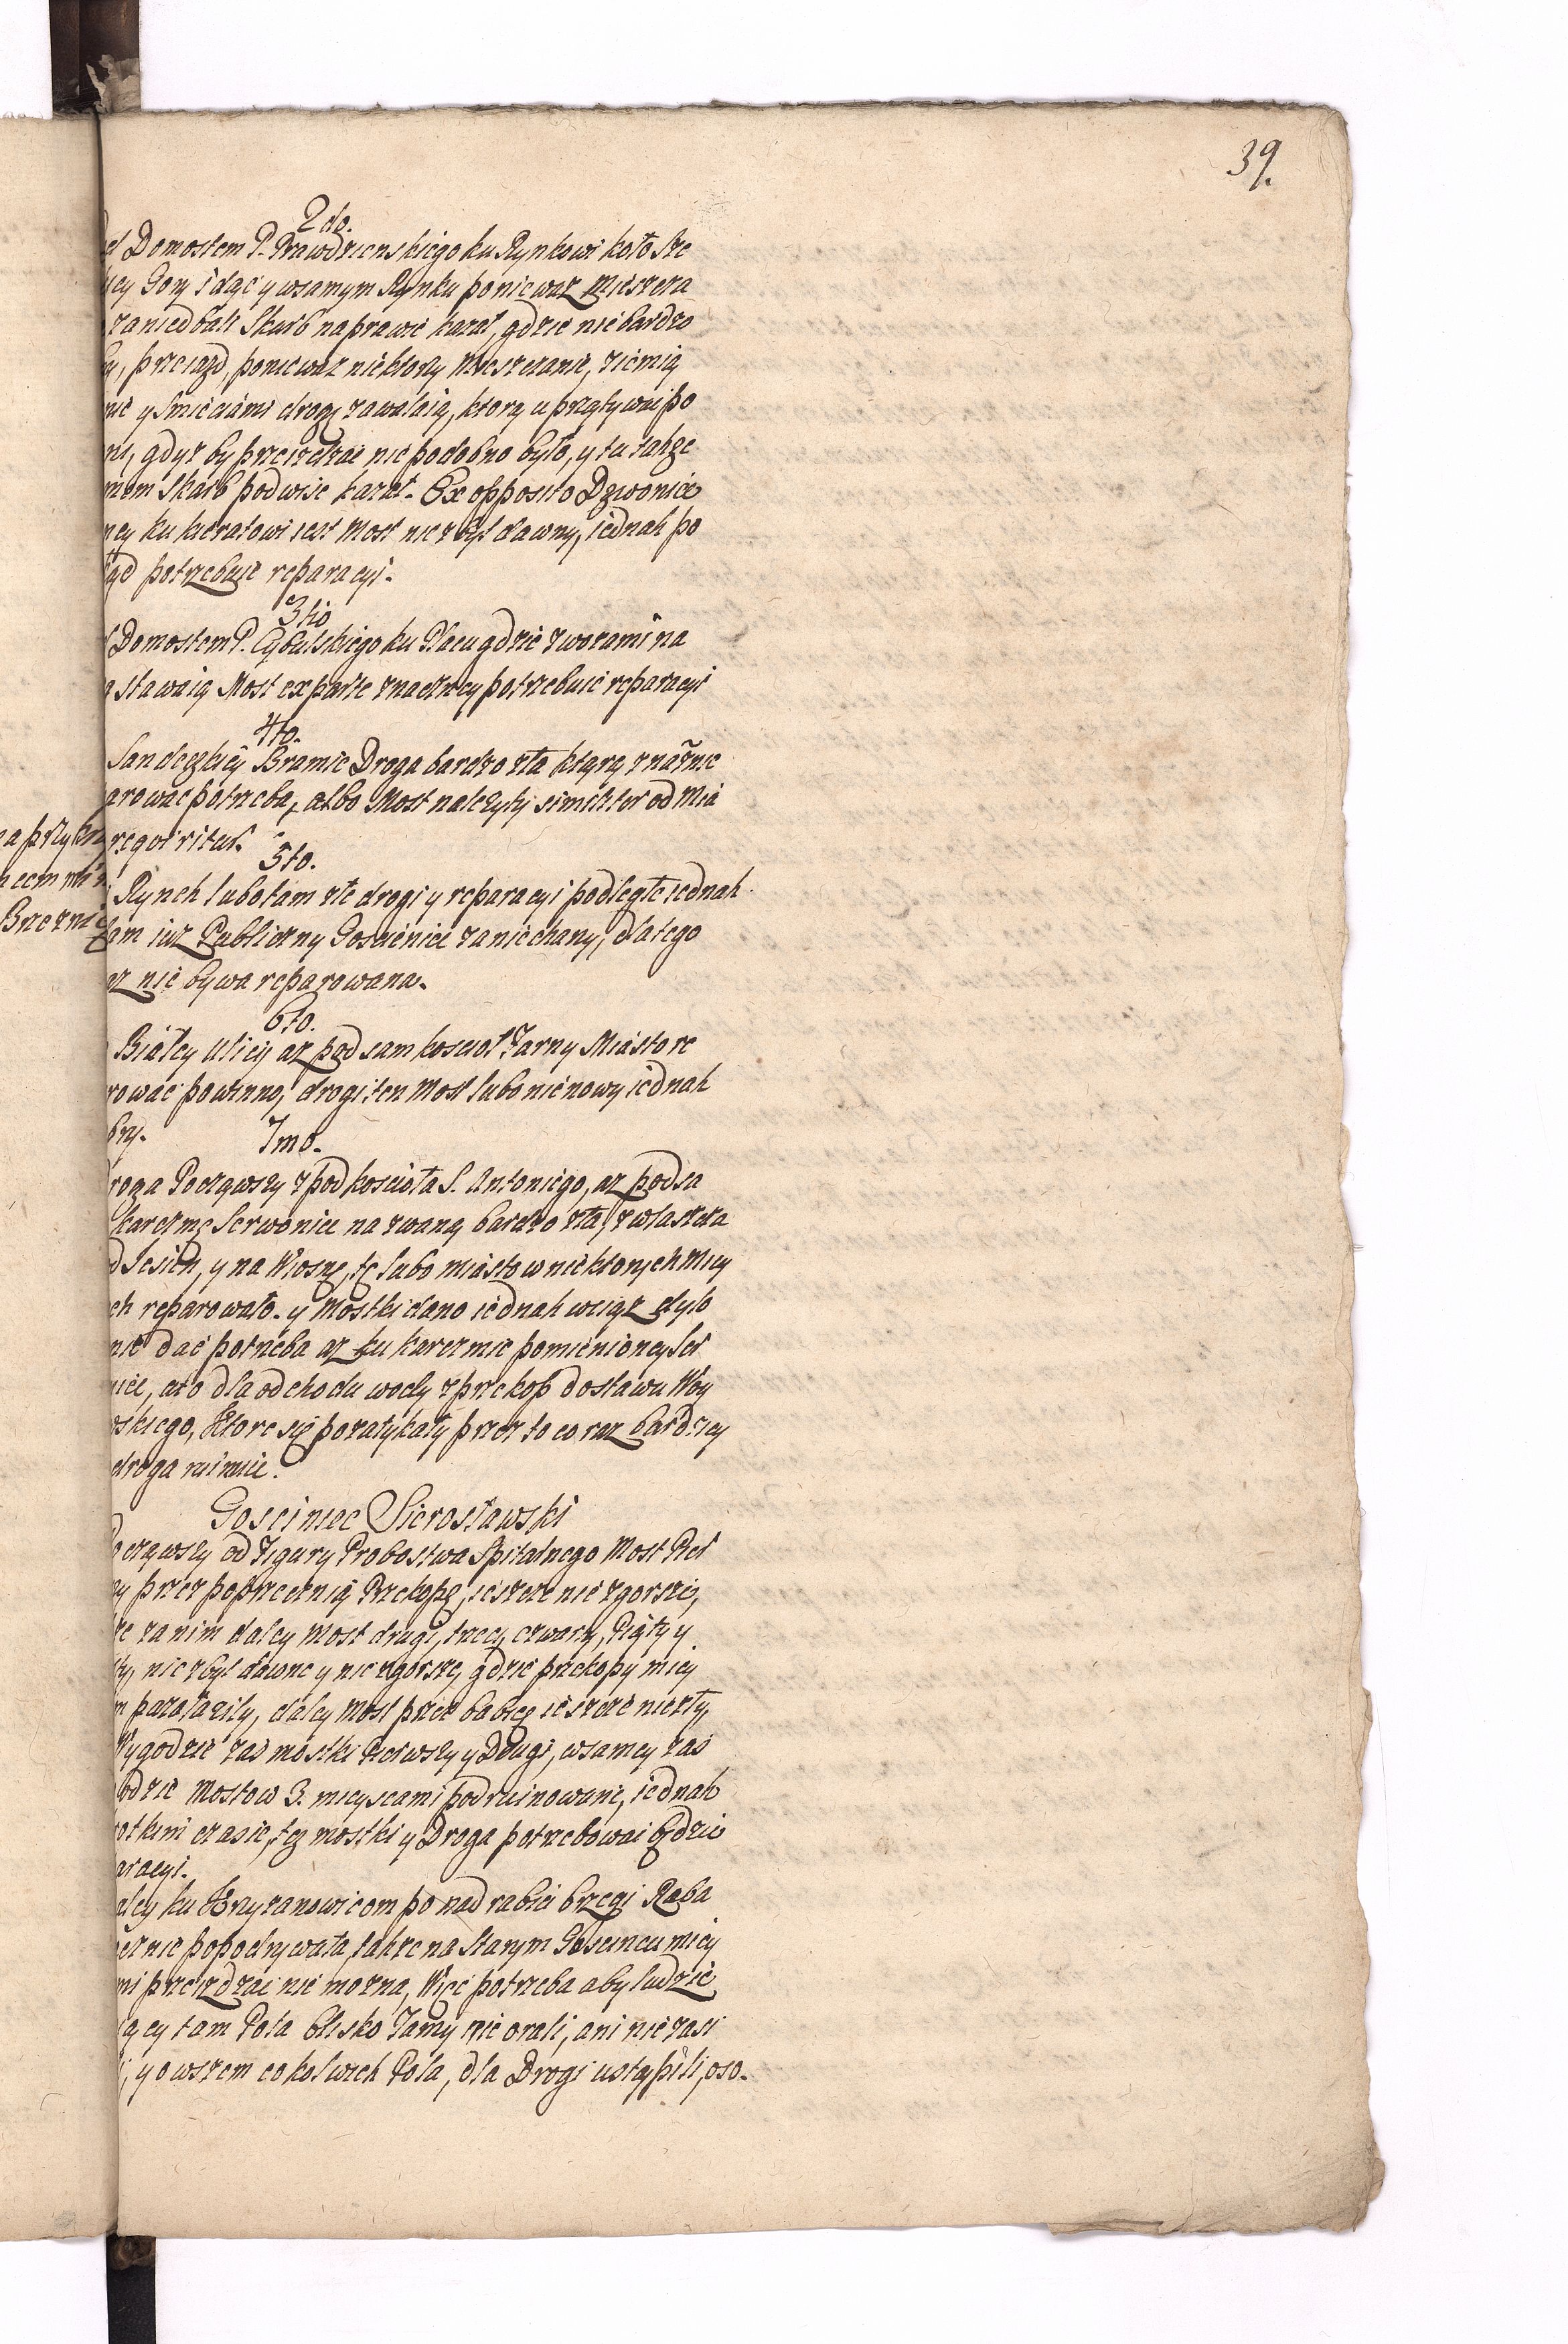 39.
2do.
Domostem P. Prawdzienskiego ku Rynkowi koło Sze
Gory idąc y wsamym Rynku poniewaz Mieszcza
zaniedbali Skarb naprawić kazał, gdzie nie bardzo
przeiazd, poniewaz niektorzy Mieszczanie, ziemią
y Smieciami drogę zawalaią, ktorą uprzątywać po
gdyz by przeiezdzać nie podobno było, y tu takze
Skarb podwisc kazał. Ex opposito Dzwonice
ku kieratowi iest Most nie zbyt dawny, iednak po
potrzebuie reparacyi.
3tio
Domostem P. Cybulskiego ku Placu gdzie zworami na
stawaią Most ex parte znaczney potrzebuie reparacyi
4to.
Sandeczkiey Bramie Droga bardzo zła ktorą znacznie
arować potrzeba, albo Most nalezyty similiter od Mia
requiritur.
5to.
Rynek lubo tam złe drogi y reparacyi podległe iednak
tam iuz Publiczny Gosciniec zaniechany, dlatego
az nie bywa reparowana.
6to.
Białey Ulicy az pod sam koscioł Farny Miasto re
rować powinno, drogi ten Most lubo nie nowy iednak
bry.
7mo.
roga Począwszy z pod koscioła S. Antoniego, az pod sa
karczmę Serwonice nazwaną bardzo zła, zwłaszcza
Iesień, y na Wiosnę, tę lubo miasto w niektorych Miey
ch reparowało. y Mostki dano iednak wciąz dylo
nie dać potrzeba az ku karczmie pomienioney Ser
nice, a to dla odchodu wody z przekop dostawu Woy
skiego, Ktore się pozatykały przez to co raz bardziey
droga ruinuie.
Gosciniec Sierosławski
ocząwszy od Figury Probostwa Spitalnego Most Pier
przez poprzecznią Przekopę, ieszcze nie zgorszy,
za nim daley Most drugi, trzeci, czwarty, Piąty y
nie zbyt dawne y nie zgorsze, gdzie przekopy miey
pozałaziły, daley Most przez babicę ieszcze niezły,
Wygodzie zas mostki Pierwszy y Drugi, wsamey zas
odzie Mostow 3. mieyscami podruinowane, iednak
otkim czasie, tez mostki y Droga potrzebować będzie
aracyi.
aley ku Krzyzanowicom ponad rabici brzegi Raba
cznie popodrywała, takze na Starym Goscincu miey
mi przeiezdzać nie mozna, Więc potrzeba aby ludzie
ący tam Pola blisko Tamy nie orali, ani nie zasi
, y owszem cokolwiek Pola, dla Drogi ustąpili, oso-